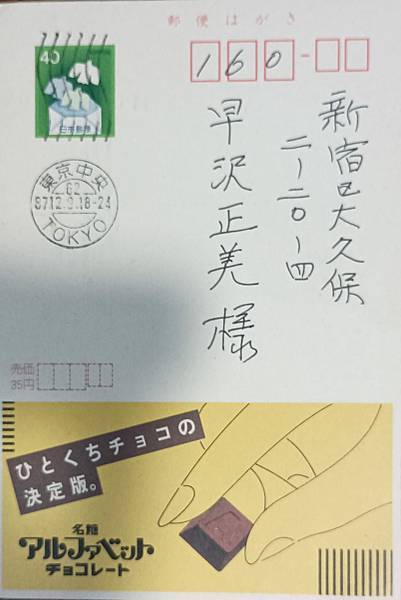 郵便はがき
40
日本郵便
160
新宿区大久保
二ー二〇ー四
早沢正美様
東京中央
62
87.12.9.18-24
TOKYO
売価
35円
ひとくちチョコの
決定版。
名糖
アルファベット
チョコレート